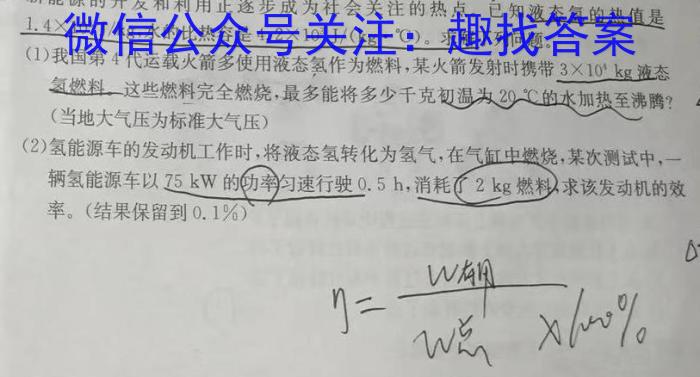 新能源的开发和利用正逐步成为社会关注的热点。已知液态氢的热值是
1.4×10 水的比热容是4.2×10 J/(kg·℃)。求解下列问题:
微信公众号关注:趣找答案
(1)我国第4代运载火箭多使用液态氢作为燃料,某火箭发射时携带3×10⁴ kg液态
氢燃料。这些燃料完全燃烧,最多能将多少千克初温为20℃的水加热至沸腾?
(当地大气压为标准大气压)
(2)氢能源车的发动机工作时,将液态氢转化为氢气,在气缸中燃烧,某次测试中,一
辆氢能源车以75 kW的功率匀速行驶0.5 h,消耗了2 kg燃料,求该发动机的效
率。(结果保留到0.1%)
η=W有用/W总×100%